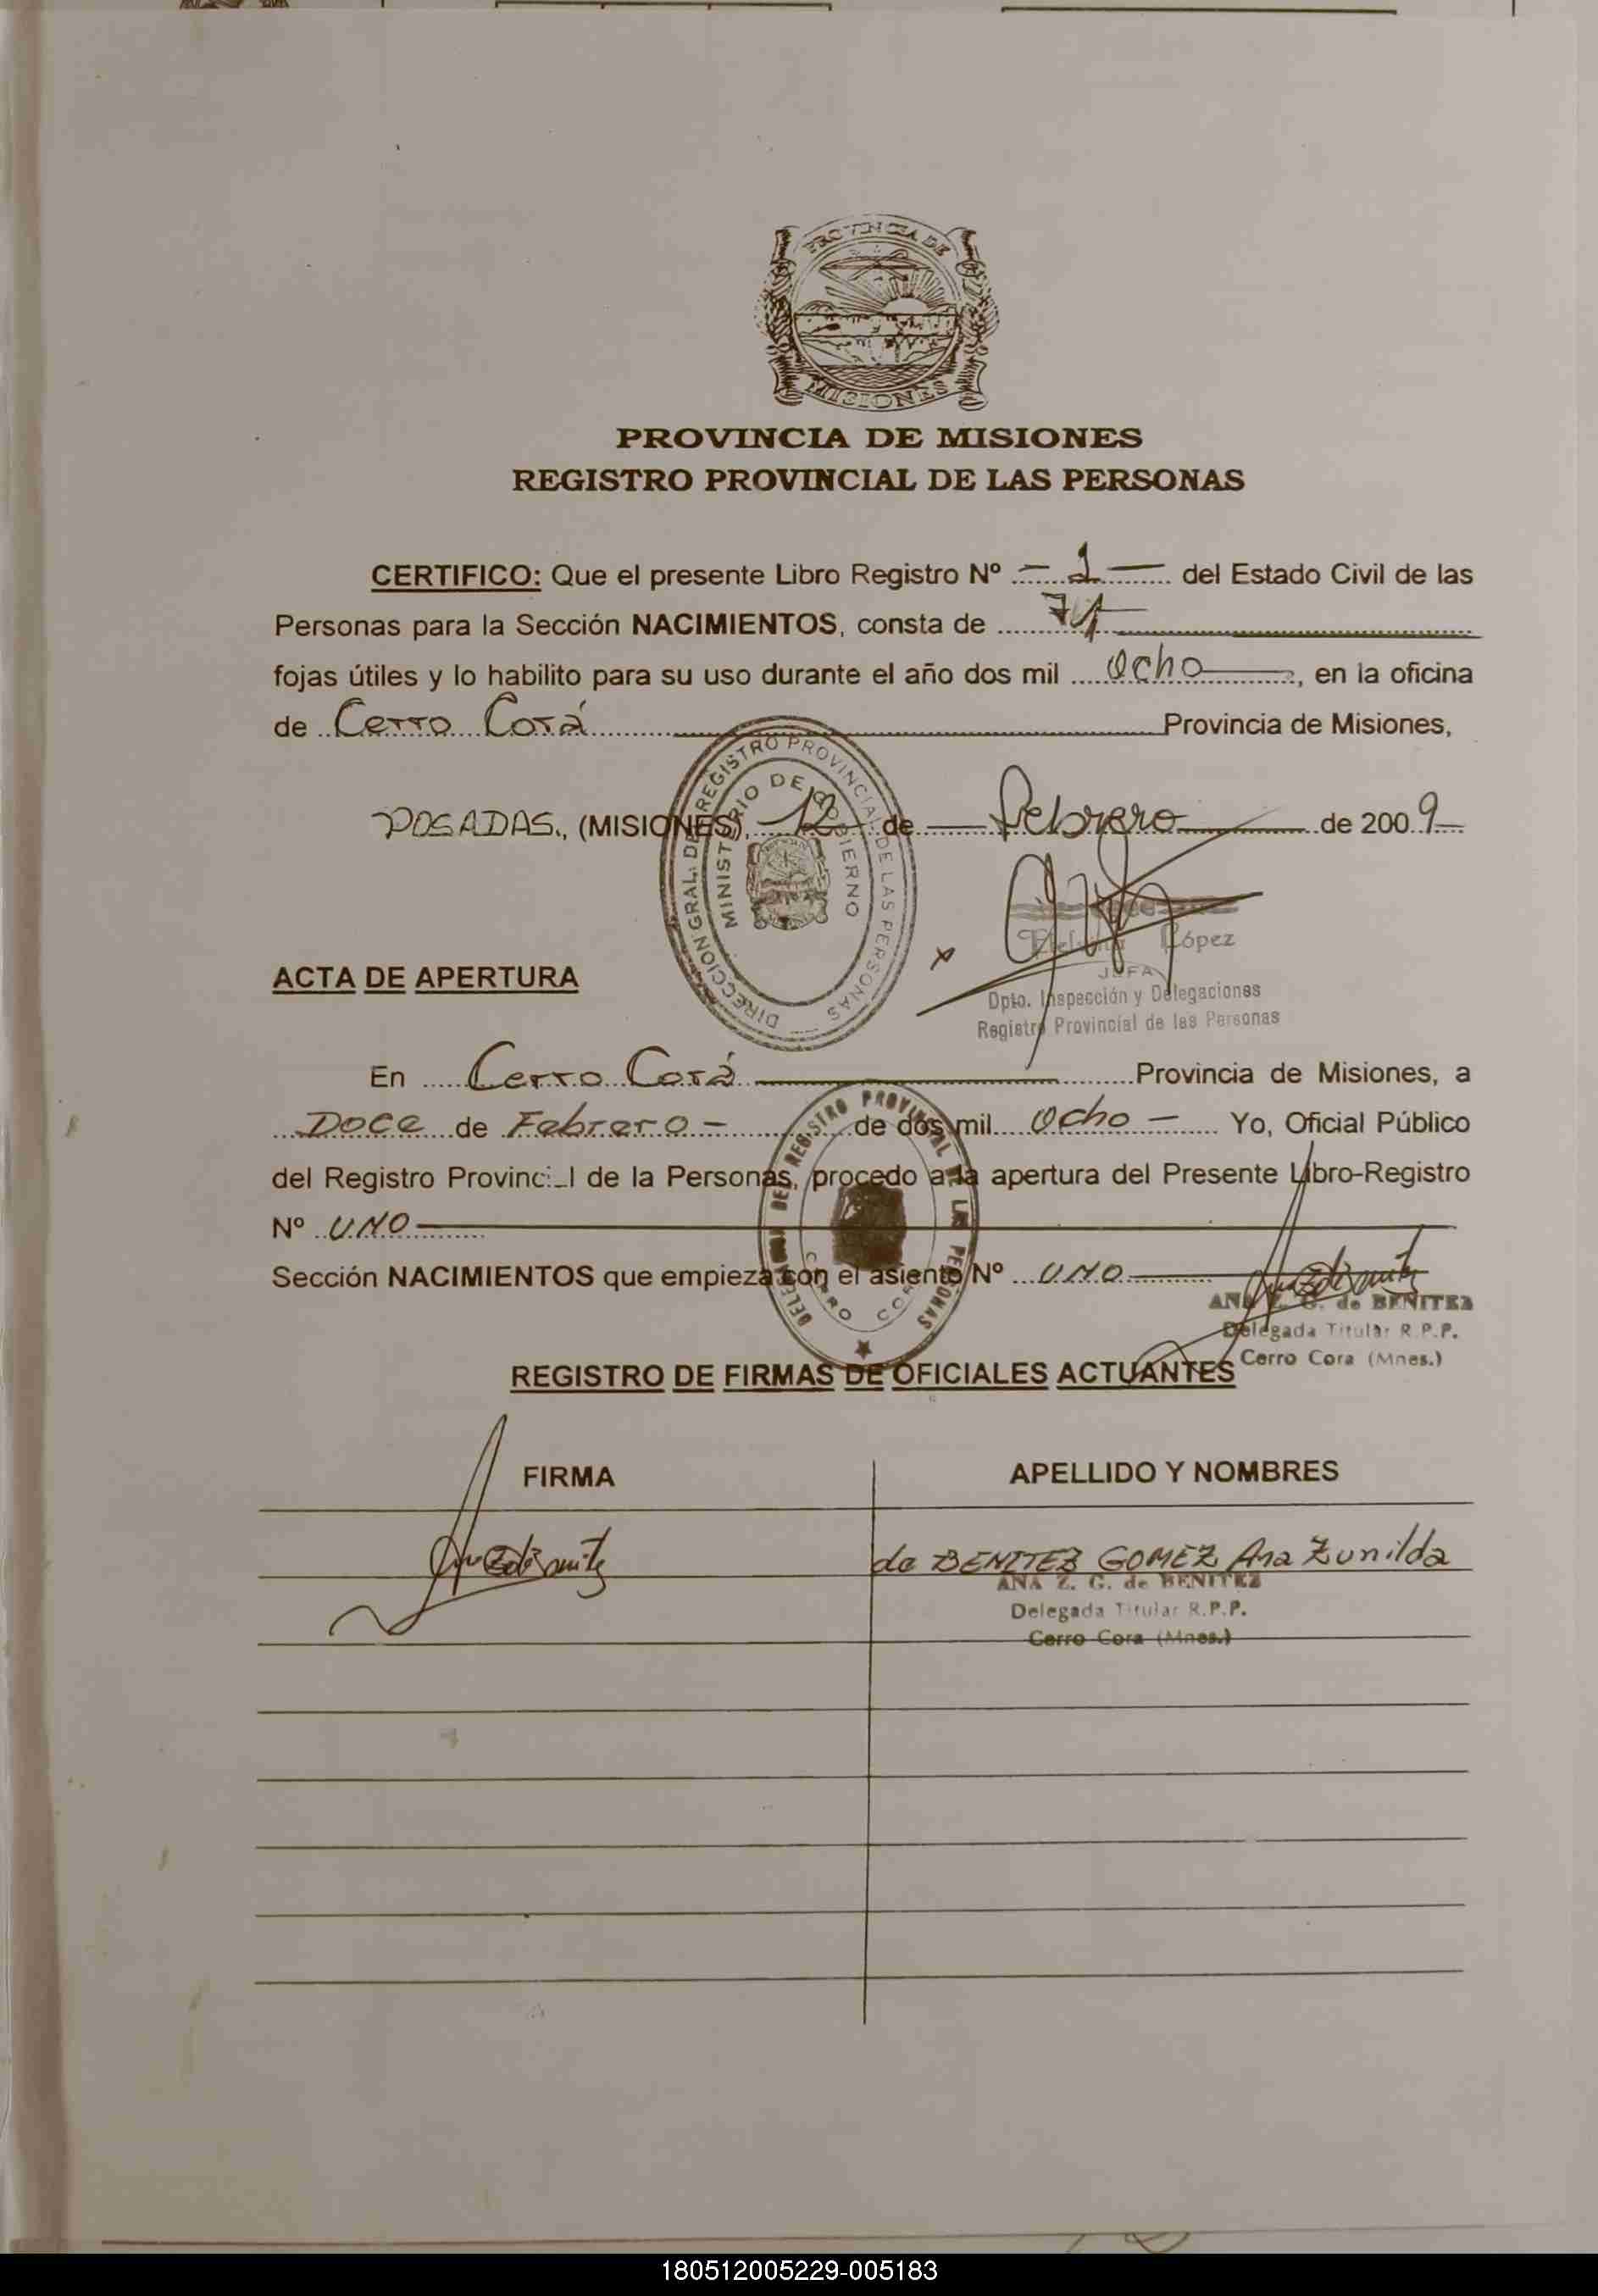 PROVINCIA DE
MISIONES
PROVINCIA DE MISIONES
REGISTRO PROVINCIAL DE LAS PERSONAS
CERTIFICO: Que el presente Libro Registro Nº - 1 - del Estado Civil de las
Personas para la Sección NACIMIENTOS, consta de 71
fojas útiles y lo habilito para su uso durante el año dos mil Ocho, en la oficina
de Cerro Corá Provincia de Misiones,
POSADAS, (MISIONES), 12 de Febrero de 2009
DIRECCION GRAL. DE REGISTRO PROVINCIAL DE LAS PERSONAS
MINISTERIO DE GOBIERNO
López
JEFA
Dpto. Inspección y Delegaciones
Registro Provincial de las Personas
ACTA DE APERTURA
En Cerro Corá Provincia de Misiones, a
Doce de Febrero - de dos mil Ocho - Yo, Oficial Público
del Registro Provinc l de la Personas, procedo a la apertura del Presente Libro-Registro
Nº UNO
Sección NACIMIENTOS que empieza con el asiento Nº UNO
DELEGADA DE REGISTRO PROVINCIAL DE LAS PERSONAS
CERRO CORA
ANA Z. G. de BENITEZ
Delegada Titular R.P.P.
Cerro Cora (Mnes.)
REGISTRO DE FIRMAS DE OFICIALES ACTUANTES
FIRMA APELLIDO Y NOMBRES
de BENITEZ GOMEZ Ana Zunilda
ANA Z. G. de BENITEZ
Delegada Titular R.P.P.
Cerro Cora (Mnes.)
180512005229-005183